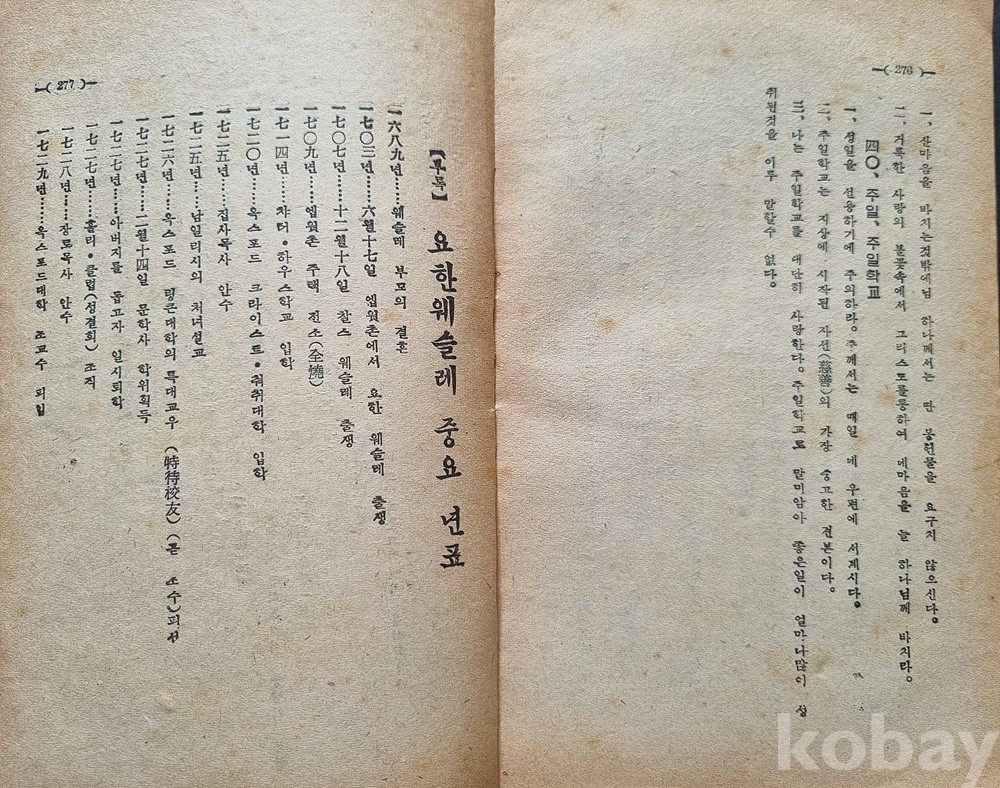 —( 276 )—
一、산마음을 바치는것밖에넌 하나께서는 딴 봉헌물을 요구지 않으신다。
二、거룩한 사랑의 불꽃속에서 그리스도를통하여 네마음을 늘 하나님께 바치라。
四〇、주일、주일학교
一、성일을 선용하기에 주의하라。주께서는 매일 네 우편에 서계시다。
二、주일학교는 지상에 시작된 자선(慈善)의 가장 숭고한 견본이다。
三、나는 주일학교를 대단히 사랑한다。주일학교로 말미암아 좋은일이 얼마나많이 성
취된것을 이루 말할수 없다。
【부록】 요한웨슬레 중요 년표
一六八九년……웨슬레 부모의 결혼
一七〇三년……六월十七일 엡웟촌에서 요한 웨슬레 출생
一七〇七년……十二월十八일 찰스 웨슬레 출생
一七〇九년……엡웟촌 주택 전소(全燒)
一七一四년……챠터・하우스학교 입학
一七二〇년……옥스포드 크라이스트・춰취대학 입학
一七二五년……집사목사 안수
一七二五년……남일리지의 처녀설교
一七二六년……옥스포드 링큰대학의 특대교우 (特待校友) (곧 조수)피선
一七二七년……二월十四일 문학사 학위획득
一七二七년……아버지를 돕고자 일시퇴학
一七二七년……홀리・클럽(성결회) 조직
一七二八년……장로목사 안수
一七二九년……옥스포드대학 조교수 피임
—( 277 )—
kobay